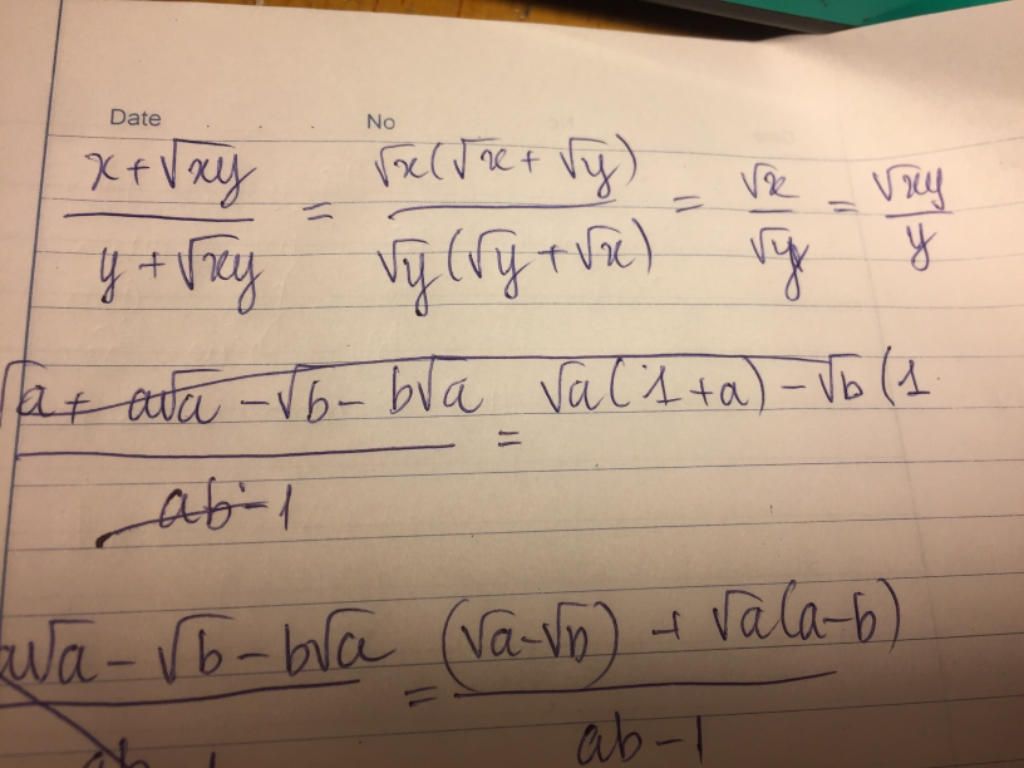 Date No
x + √xy / y + √xy = √x(√x + √y) / √y(√y + √x) = √x / √y = √xy / y
√a + a√a - √b - b√a / ab - 1 = √a(1 + a) - √b (1
a√a - √b - b√a / ab - 1 = (√a - √b) + √a(a - b) / ab - 1